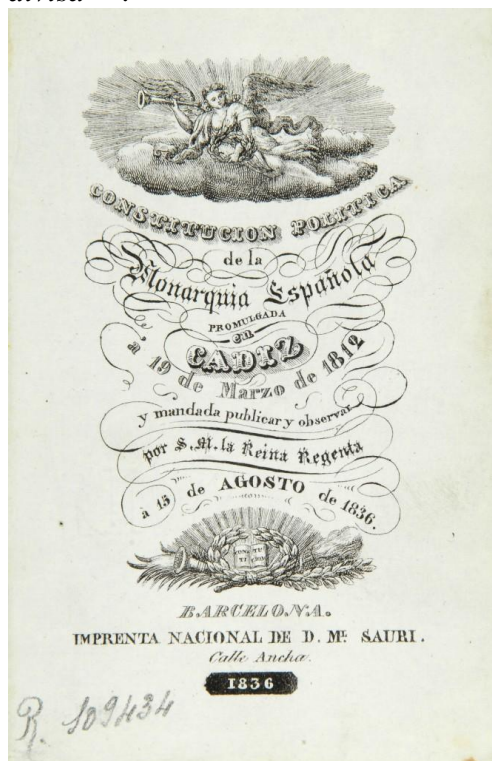 CONSTITUCION POLITICA
de la
Monarquia Española
PROMULGADA
en
CADIZ
a 19 de Marzo de 1812
y mandada publicar y observar
por S. M. la Reina Regenta
a 15 de AGOSTO de 1836.
CONS TITU
TI CION
BARCELONA.
IMPRENTA NACIONAL DE D. Ml. SAURI.
Calle Ancha.
1836
R. 109434